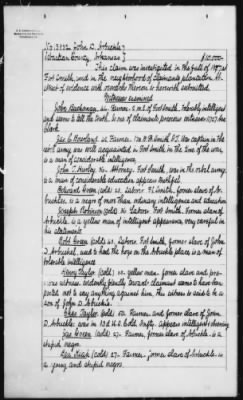 No. 13922 John D. Arbuckle
Sebastian County, Arkansas $10,000
This claim was investigated in the fall of 1874 at
Fort Smith, and in the neighborhood of claimants plantation. Ab-
stract of evidence with remarks thereon is herewith submitted.
Witnesses examined
John Buchanan, 40. Farmer. 2 m. S. of Fort Smith. Tolerably intelligent
and seems to tell the truth. Is one of claimants precious witnesses
black
Jas. C. Rowland, 42. Farmer. Ft. Smith P.O. Was captain in the
reb army, was well acquainted in Fort Smith in the time of the war,
is a man of considerable intelligence
John T. Hurley, 40. Attorney. Fort Smith, was in the rebel army.
is a man of considerable education appears truthful.
Edward Green (cold) 40. Laborer. Ft. Smith. former slave of Ar-
buckle, is a negro of more than ordinary intelligence and education
Joseph Robinson (cold) Laborer. Fort Smith. Former slave of
Arbuckle, is a yellow man of intelligent appearance, very careful in
his statements
Robt Green (cold) Laborer Fort Smith, former slave of John
D. Arbuckle, used to head the boys on the Arbuckle place, is a man of
tolerable intelligence
Henry Taylor (cold) yellow man. former slave and pre-
cious witness. evidently friendly toward claimant seems to have been
posted not to say anything against him, this witness is said to be a
son of John D. Arbuckle.
Chas Taylor (cold) Farmer. and former slave of John
D. Arbuckle, was in U.S. Cold. Infty. appears intelligent
Jas Green (cold) 27. Farmer, former slave of Arbuckle. is a
stupid negro.
(cold) 27. Farmer. former slave of Arbuckle. is
a young and stupid negro.